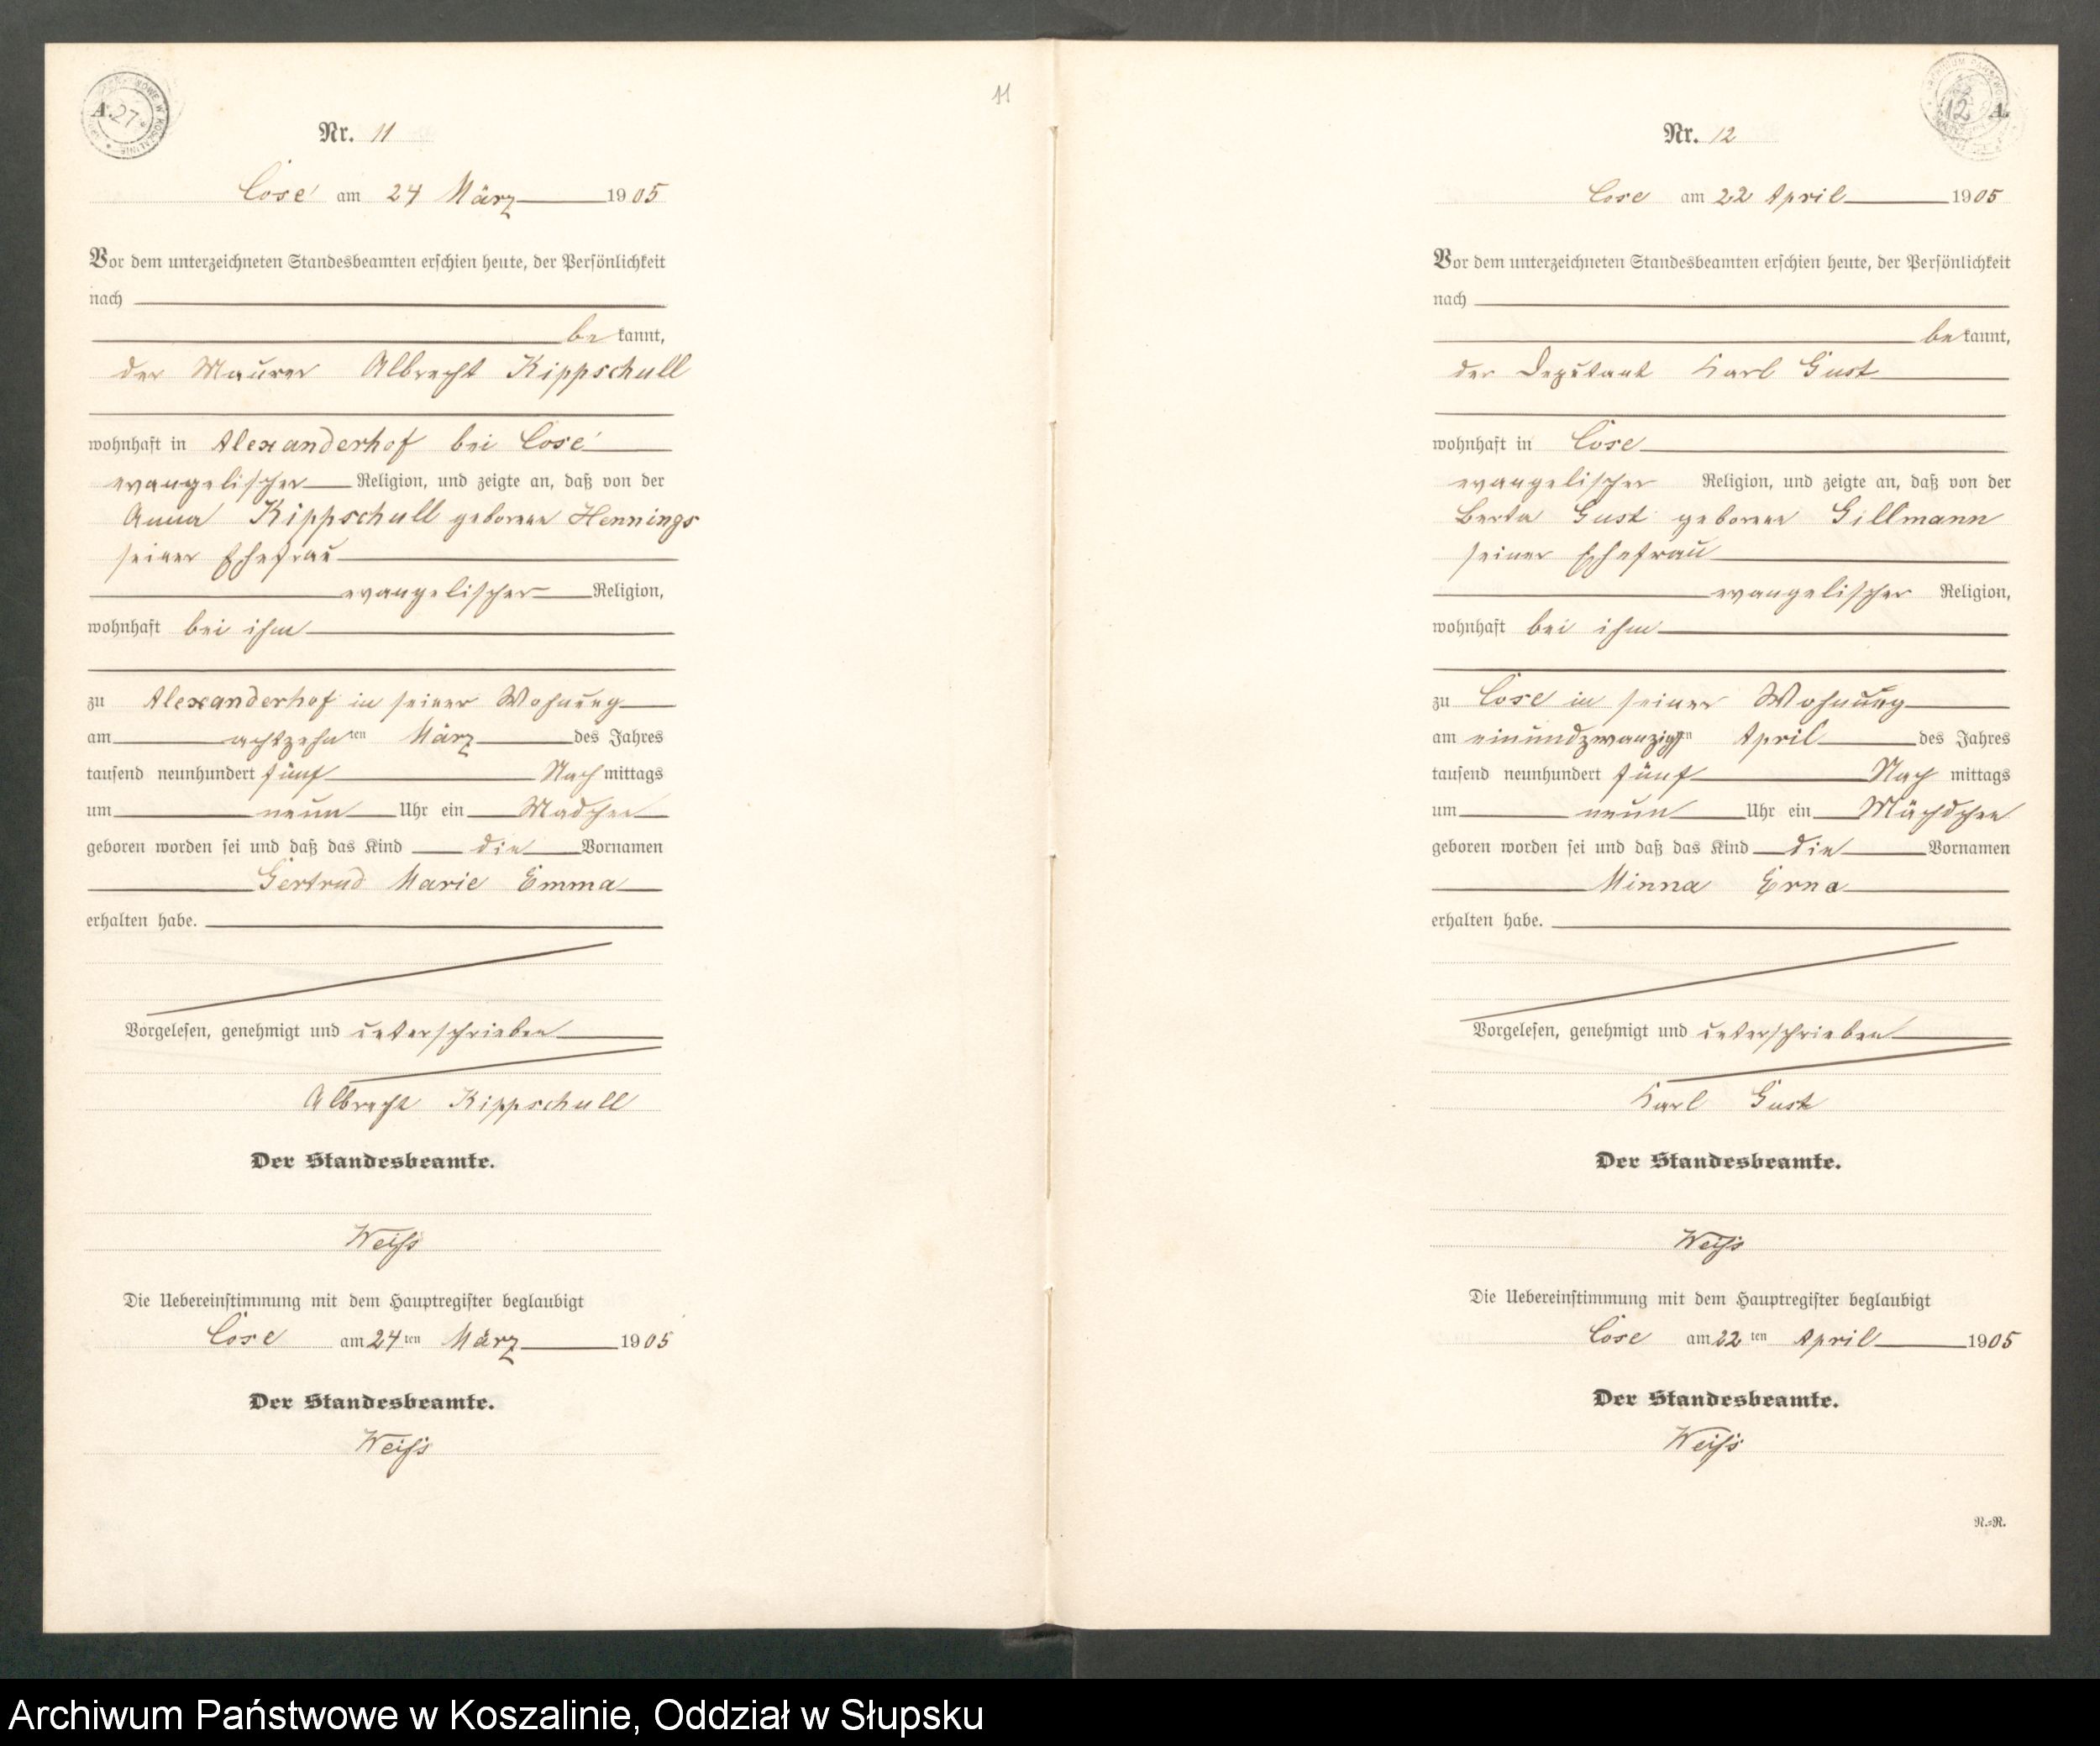 A. 27
11
Nr. 11
Cosé am 24 März 1905
Vor dem unterzeichneten Standesbeamten erschien heute, der Persönlichkeit
nach
be kannt,
der Maurer Albrecht Kippschull
wohnhaft in Alexanderhof bei Cosé
evangelischer Religion, und zeigte an, daß von der
Anna Kippschull geborene Hennings
seiner Ehefrau
evangelischer Religion,
wohnhaft bei ihm
zu Alexanderhof in seiner Wohnung
am achtzehnten März des Jahres
tausend neunhundert fünf Nachmittags
um neun Uhr ein Madchen
geboren worden sei und daß das Kind die Vornamen
Gertrud Marie Emma
erhalten habe.
Vorgelesen, genehmigt und unterschrieben
Albrecht Kippschull
Der Standesbeamte.
Weiß
Die Uebereinstimmung mit dem Hauptregister beglaubigt
Cose am 24ten März 1905
Der Standesbeamte.
Weiß
12 A.
Nr. 12
Cose am 22 April 1905
Vor dem unterzeichneten Standesbeamten erschien heute, der Persönlichkeit
nach
be kannt,
der Deputant Karl Gust
wohnhaft in Cose
evangelischer Religion, und zeigte an, daß von der
Berta Gust geborene Gillmann
seiner Ehefrau
evangelischer Religion,
wohnhaft bei ihm
zu Cose in seiner Wohnung
am einundzwanzigsten April des Jahres
tausend neunhundert fünf Nach mittags
um neun Uhr ein Mächdchen
geboren worden sei und daß das Kind die Vornamen
Minna Erna
erhalten habe.
Vorgelesen, genehmigt und unterschrieben
Karl Gust
Der Standesbeamte.
Weiß
Die Uebereinstimmung mit dem Hauptregister beglaubigt
Cose am 22 ten April 1905
Der Standesbeamte.
Weiß
N.=R.
Archiwum Państwowe w Koszalinie, Oddział w Słupsku